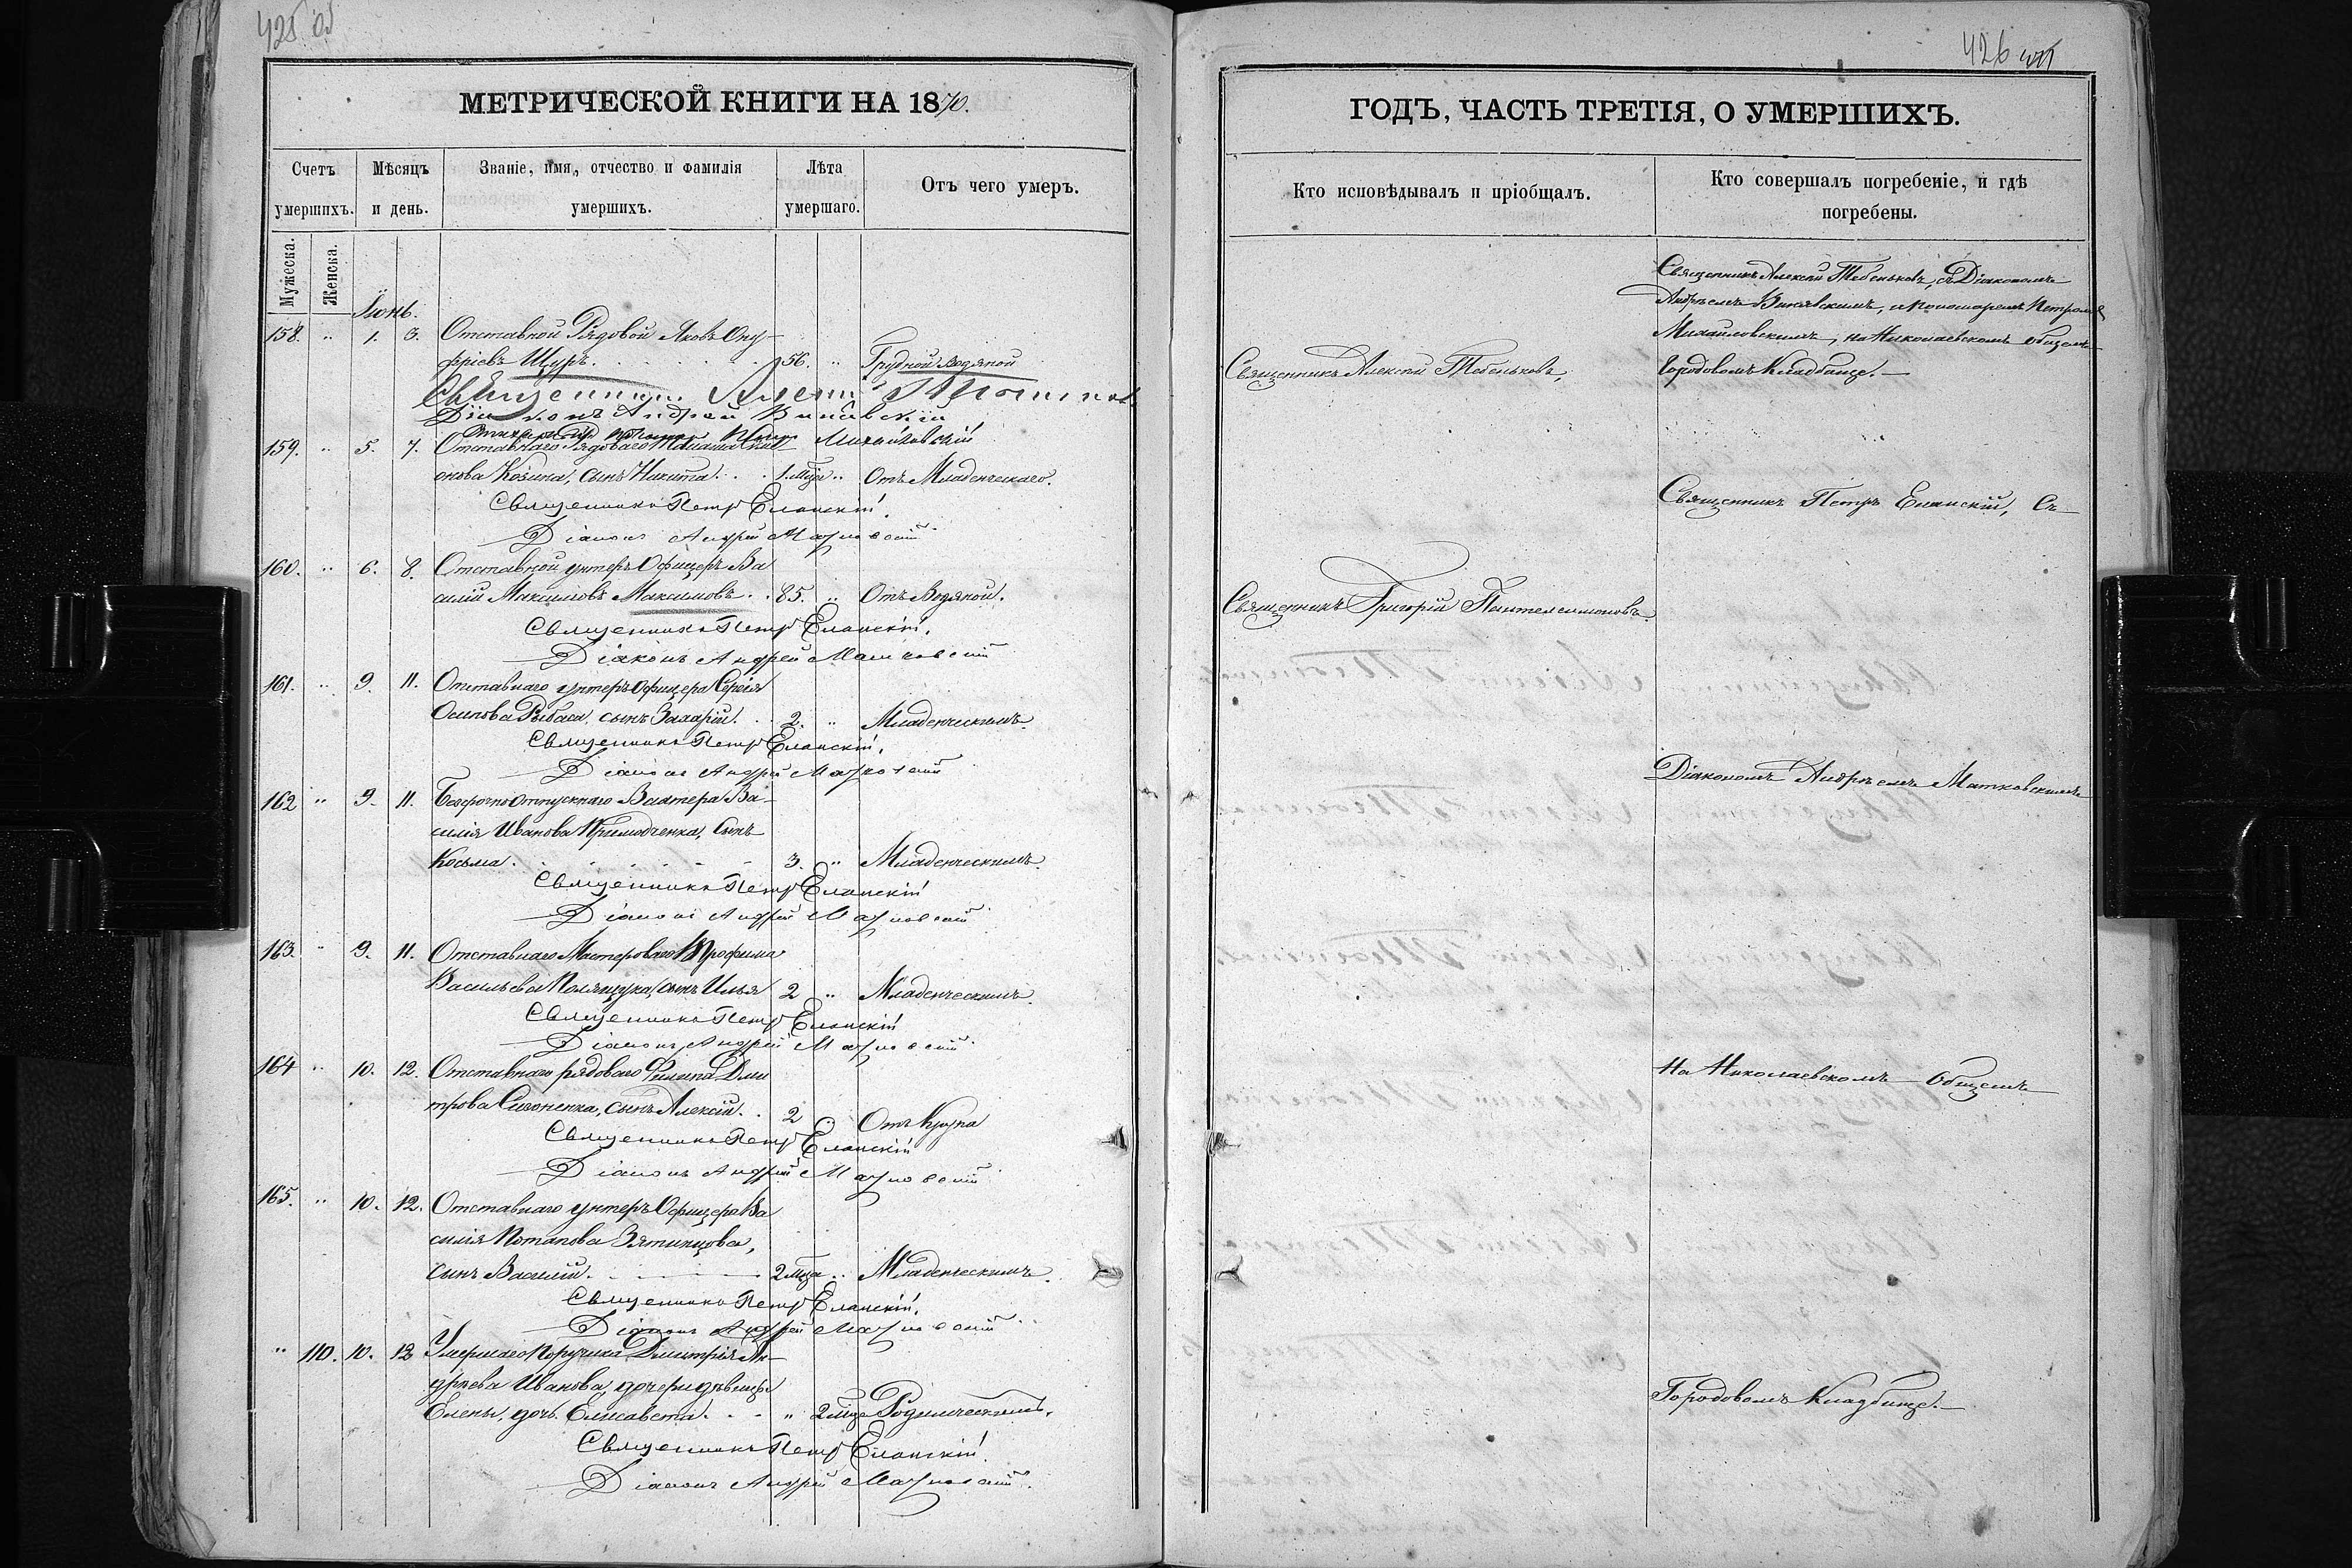 425 об
426
МЕТРИЧЕСКОЙ КНИГИ НА 1870.
ГОДЪ, ЧАСТЬ ТРЕТІЯ, О УМЕРШИХЪ.
Счетъ умершихъ.
Мѣсяцъ и день.
Званіе, имя, отчество и фамилія умершихъ.
Лѣта умершаго.
Отъ чего умеръ.
Кто исповѣдывалъ и пріобщалъ.
Кто совершалъ погребеніе, и гдѣ погребены.
Мужеска.
Женска.
Іюнь.
158. " 1. 3. Отставной Рядовой Яковъ Ону-
фріевъ Щуръ. 56. " Грудной водяной
Священникъ Алексій
Діаконъ Андрей
Михайловскій
159. " 5. 7. Отставнаго Рядоваго
онова Козина, сынъ Никита. 1 мѣся. " Отъ Младенческаго.
Священникъ Петръ Еланскій.
Діаконъ Андрей Матковскій
160. " 6. 8. Отставной унтеръ Офицеръ Ва
силій Максимовъ Максимовъ. 85. " Отъ Водяной.
Священникъ Петръ Еланскій.
Діаконъ Андрей Матковскій
161. " 9. 11. Отставнаго унтеръ Офицера Сергія
Осипова Рыбаса, сынъ Захарій. 2. " Младенческимъ.
Священникъ Петръ Еланскій.
Діаконъ Андрей Матковскій
162 " 9. 11. Безсрочно отпускнаго Вахтера Ва-
силія Иванова Примодченка, сынъ
Косьма. 3. " Младенческимъ.
Священникъ Петръ Еланскій
Діаконъ Андрей Матковскій
163. " 9. 11. Отставнаго Мастероваго Трофима
Васильева Полящука, сынъ Илья 2 " Младенческимъ.
Священникъ Петръ Еланскій
Діаконъ Андрей Матковскій
164 " 10. 12. Отставнаго рядоваго Филипа Дми
трова Сизоненка, сынъ Алексій. 2 " Отъ Крупа
Священникъ Петръ Еланскій
Діаконъ Андрей Матковскій
165. " 10. 12. Отставнаго унтеръ Офицера Ва
силія Потапова Зятинцова,
сынъ Василій. 2 мѣся. " Младенческимъ.
Священникъ Петръ Еланскій.
Діаконъ Андрей Матковскій
" 110. 10. 12 Умершаго Поручика Дмитрія Ан-
дреева Иванова, дочери дѣвицы
Елены, дочь Елисавета. " 2 мѣся Родимческимъ.
Священникъ Петръ Еланскій.
Діаконъ Андрей Матковскій.
Священникъ Алексій Тебеньковъ,
Священникъ Григорій Пантелеимоновъ.
Священникъ Алексій Тебеньковъ, съ Діакономъ
Андреемъ, и Пономаремъ Петромъ
Михайловскимъ, на Николаевскомъ общемъ
Городовомъ Кладбищѣ.
Священникъ Петръ Еланскій, Съ
Діакономъ Андреемъ Матковскимъ
На Николаевскомъ Общемъ
Городовомъ Кладбищѣ.